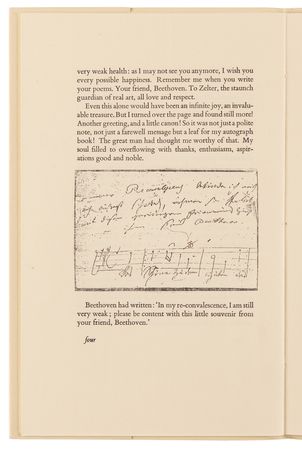 very weak health: as I may not see you anymore, I wish you
every possible happiness. Remember me when you write
your poems. Your friend, Beethoven. To Zelter, the staunch
guardian of real art, all love and respect.
Even this alone would have been an infinite joy, an invalu-
able treasure. But I turned over the page and found still more!
Another greeting, and a little canon! So it was not just a polite
note, not just a farewell message but a leaf for my autograph
book! The great man had thought me worthy of that. My
soul filled to overflowing with thanks, enthusiasm, aspir-
ations good and noble.
Beethoven had written: 'In my re-convalescence, I am still
very weak; please be content with this little souvenir from
your friend, Beethoven.'
four